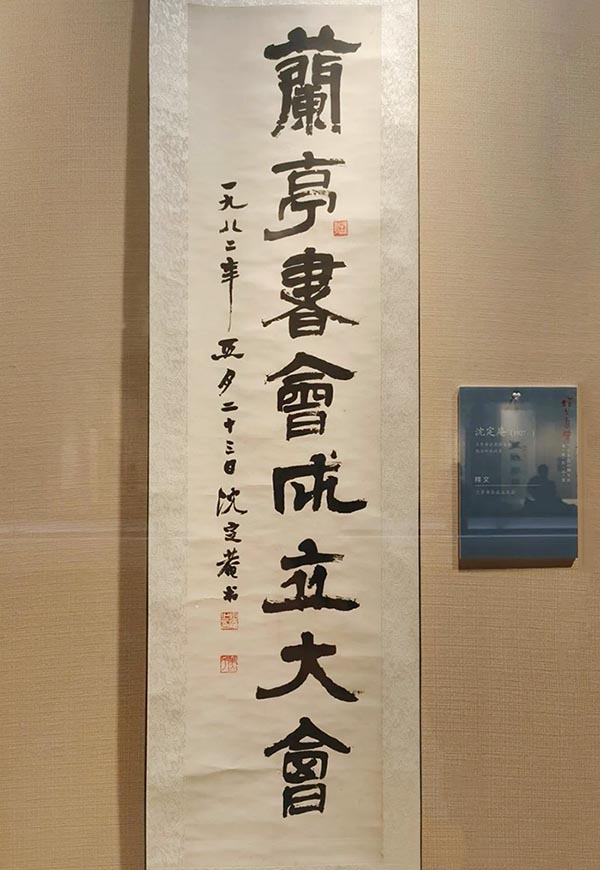 蘭亭書會成立大會
一九八二年五月二十三日沈定菴书
沈定庵
释文